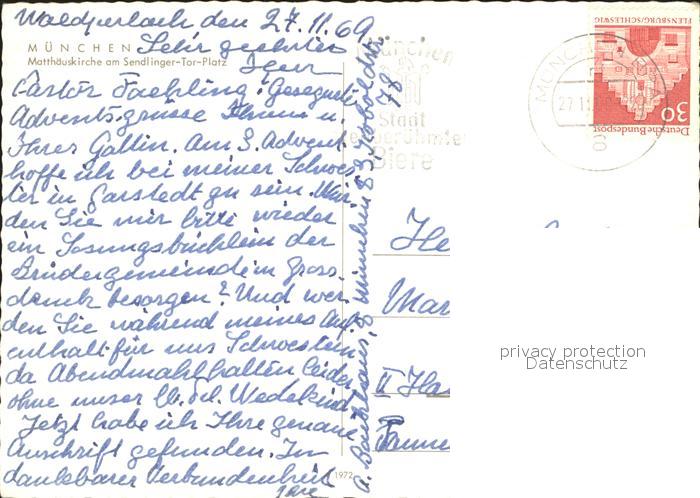 Waldperlach den 27.11.69
MÜNCHEN
Matthäuskirche am Sendlinger-Tor-Platz
Sehr geehrter
Herr
Pastor Faehling! Gesegnete
Adventsgrüsse Ihnen u.
Ihrer Gattin. Am 3. Advent
hoffe ich bei meiner Schwes-
ter in Garstedt zu sein. Wür
den Sie mir bitte wieder
ein Losungsbüchlein der
Brüdergemeinde in Gross-
druck besorgen? Und wer
den Sie während meines Auf
enthalt für uns Schwestern
da Abendmahl halten leider
ohne unser lb. Wedekind
Jetzt habe ich Ihre genaue
Anschrift gefunden. In
dankbarer Verbundenheit
Ihre
8 München 83
78
1972
München
Stadt
weltberühmter
Biere
MÜNCHEN
27.11.69
8
FLENSBURG/SCHLESWIG
30
Deutsche Bundespost
He
Mar
II Has
privacy protection
Datenschutz